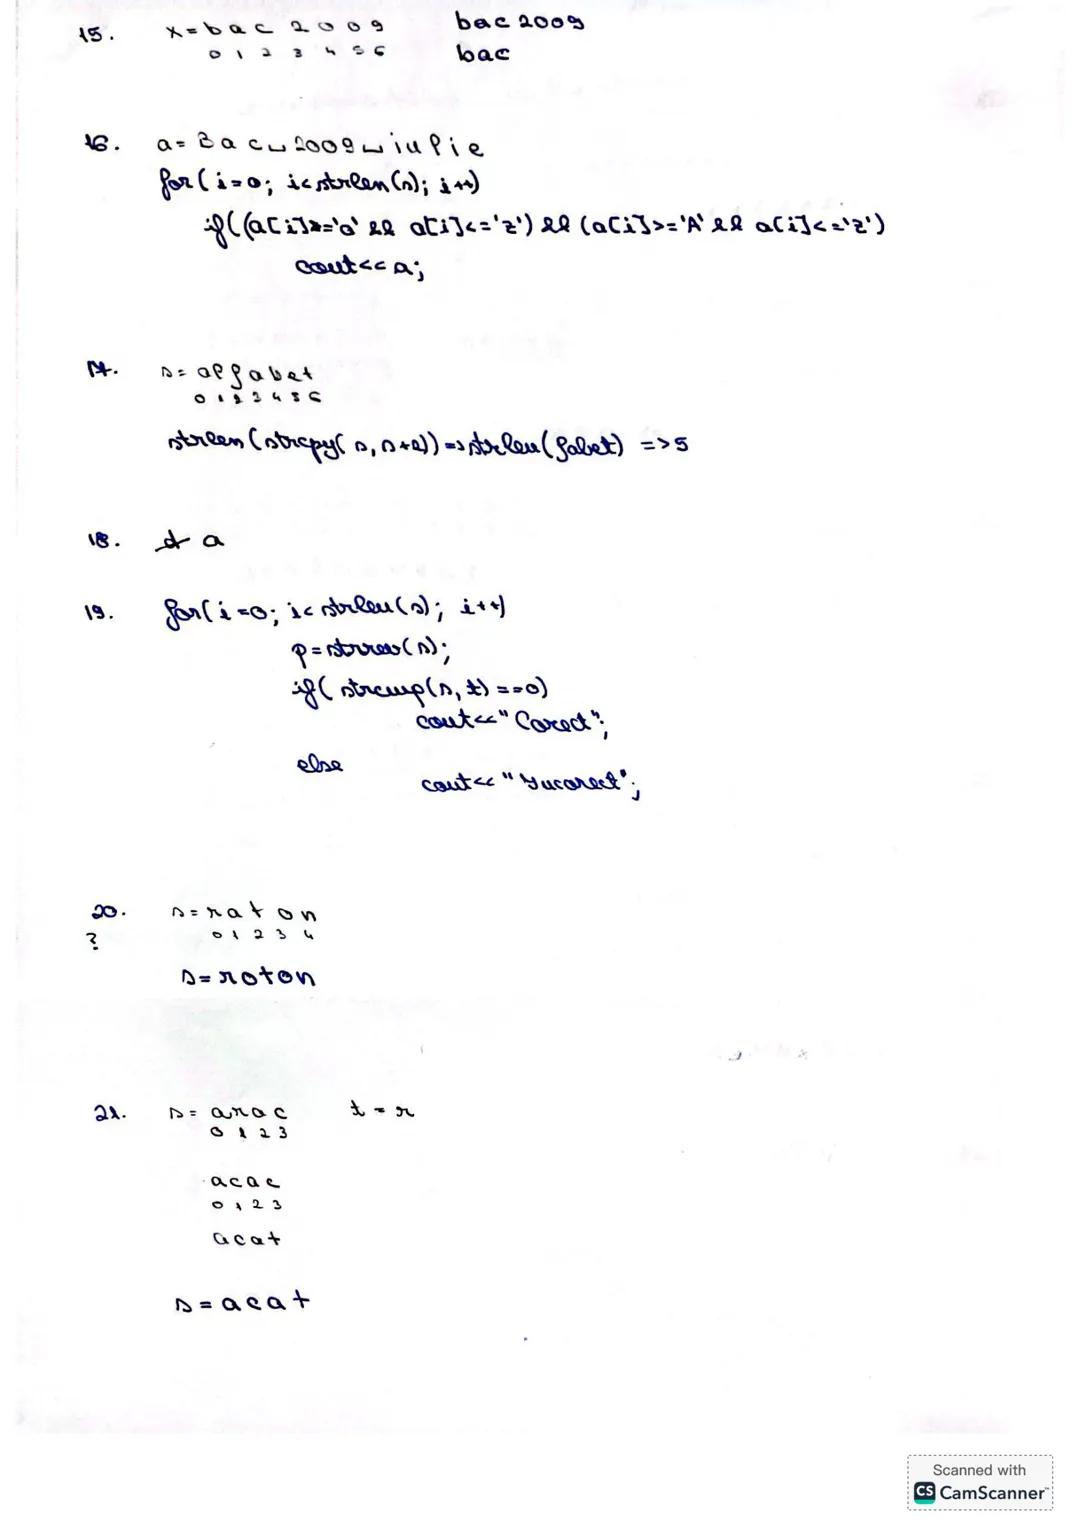 15. x=bac 2009 bac 2009
0 1 2 3 4 5 6 bac
16. a= Bac␣2009␣iulie
for(i=0; i<strlen(s); i++)
if((a[i]>='a' && a[i]<='z') && (a[i]>='A' && a[i]<='z')
cout<<a;
17. s= alfabet
0 1 2 3 4 5 6
strlen(strcpy(s, s+2))=>strlen(fabet) =>5
18. a
19. for(i=0; i<strlen(s); i++)
p=strrev(s);
if(strcmp(s,t)==0)
cout<<"Corect";
else
cout<<"Incorect";
20. s=raton
? 0 1 2 3 4
s=roton
21. s= arac t=r
0 1 2 3
acac
0 1 2 3
acat
s=acat
Scanned with
CS CamScanner